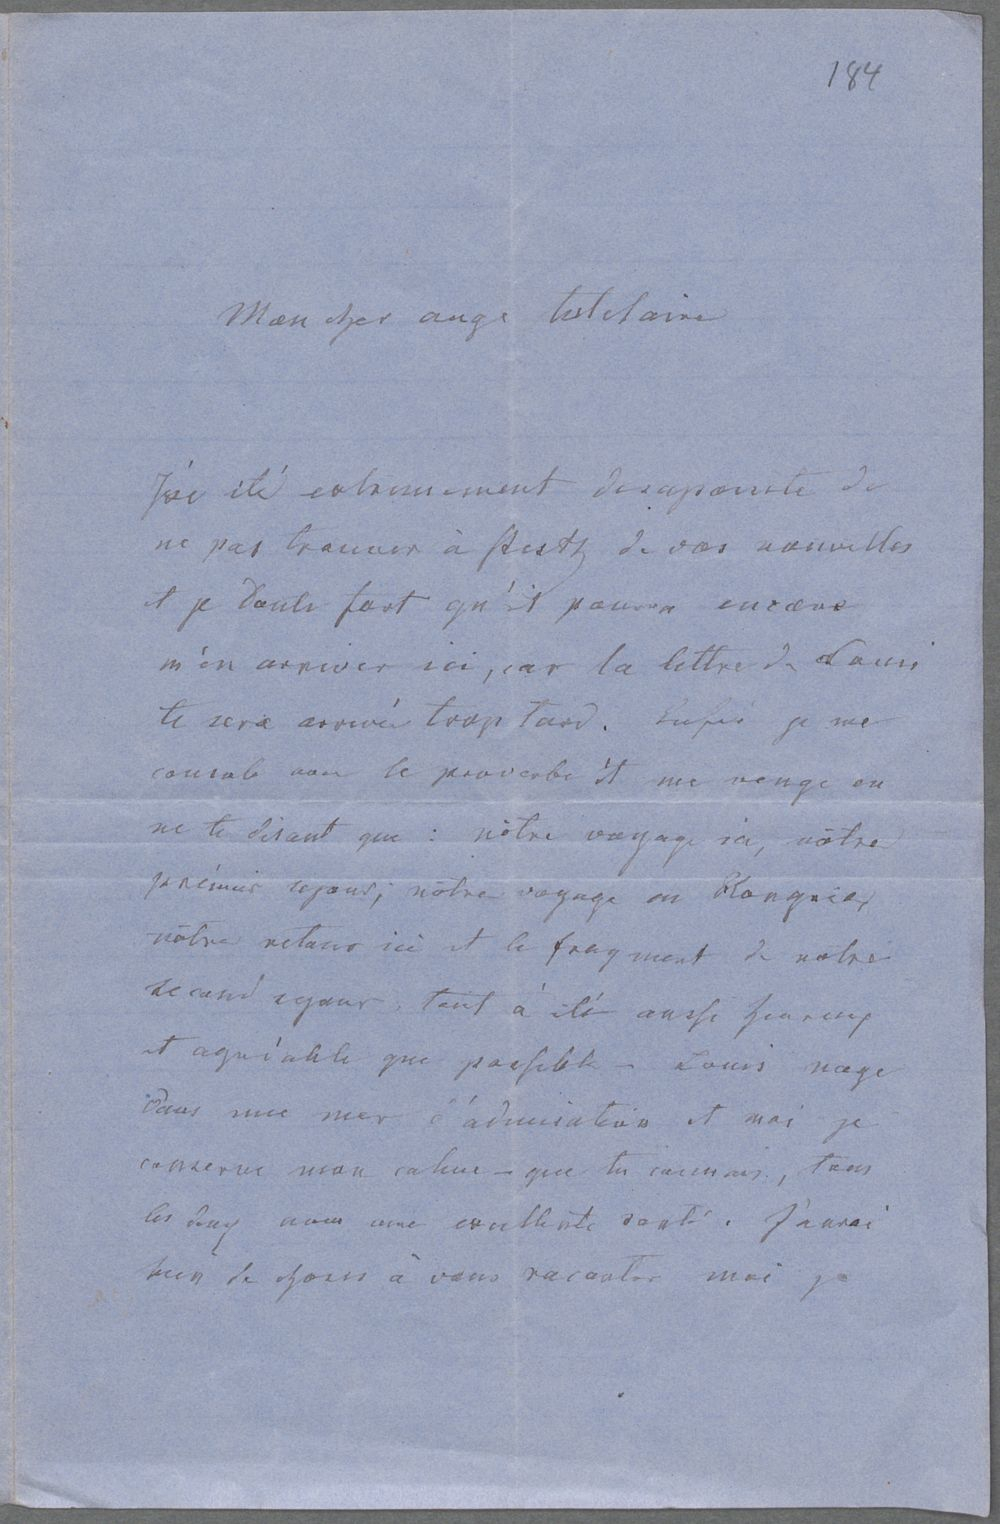 184
Mon cher ange tutelaire
J'ai été extremement desapointé de
ne pas trouver à Pesth de vos nouvelles
et je doute fort qu'il pourra encore
m'en arriver ici, car la lettre de Louis
te sera arrivée trop tard. Enfin je me
console avec le proverbe et me venge en
ne te disant que : nôtre voyage ici, nôtre
prémier sejour, nôtre voyage en Hongrie,
nôtre retour ici et le fragment de notre
second sejour, tout à été aussi heureux
et agréable que possible – Louis nage
dans une mer d'admiration et moi je
conserve mon calme – que tu connais, tous
les deux avec une excellente santé. J'aurai
bien de choses à vous raconter moi je